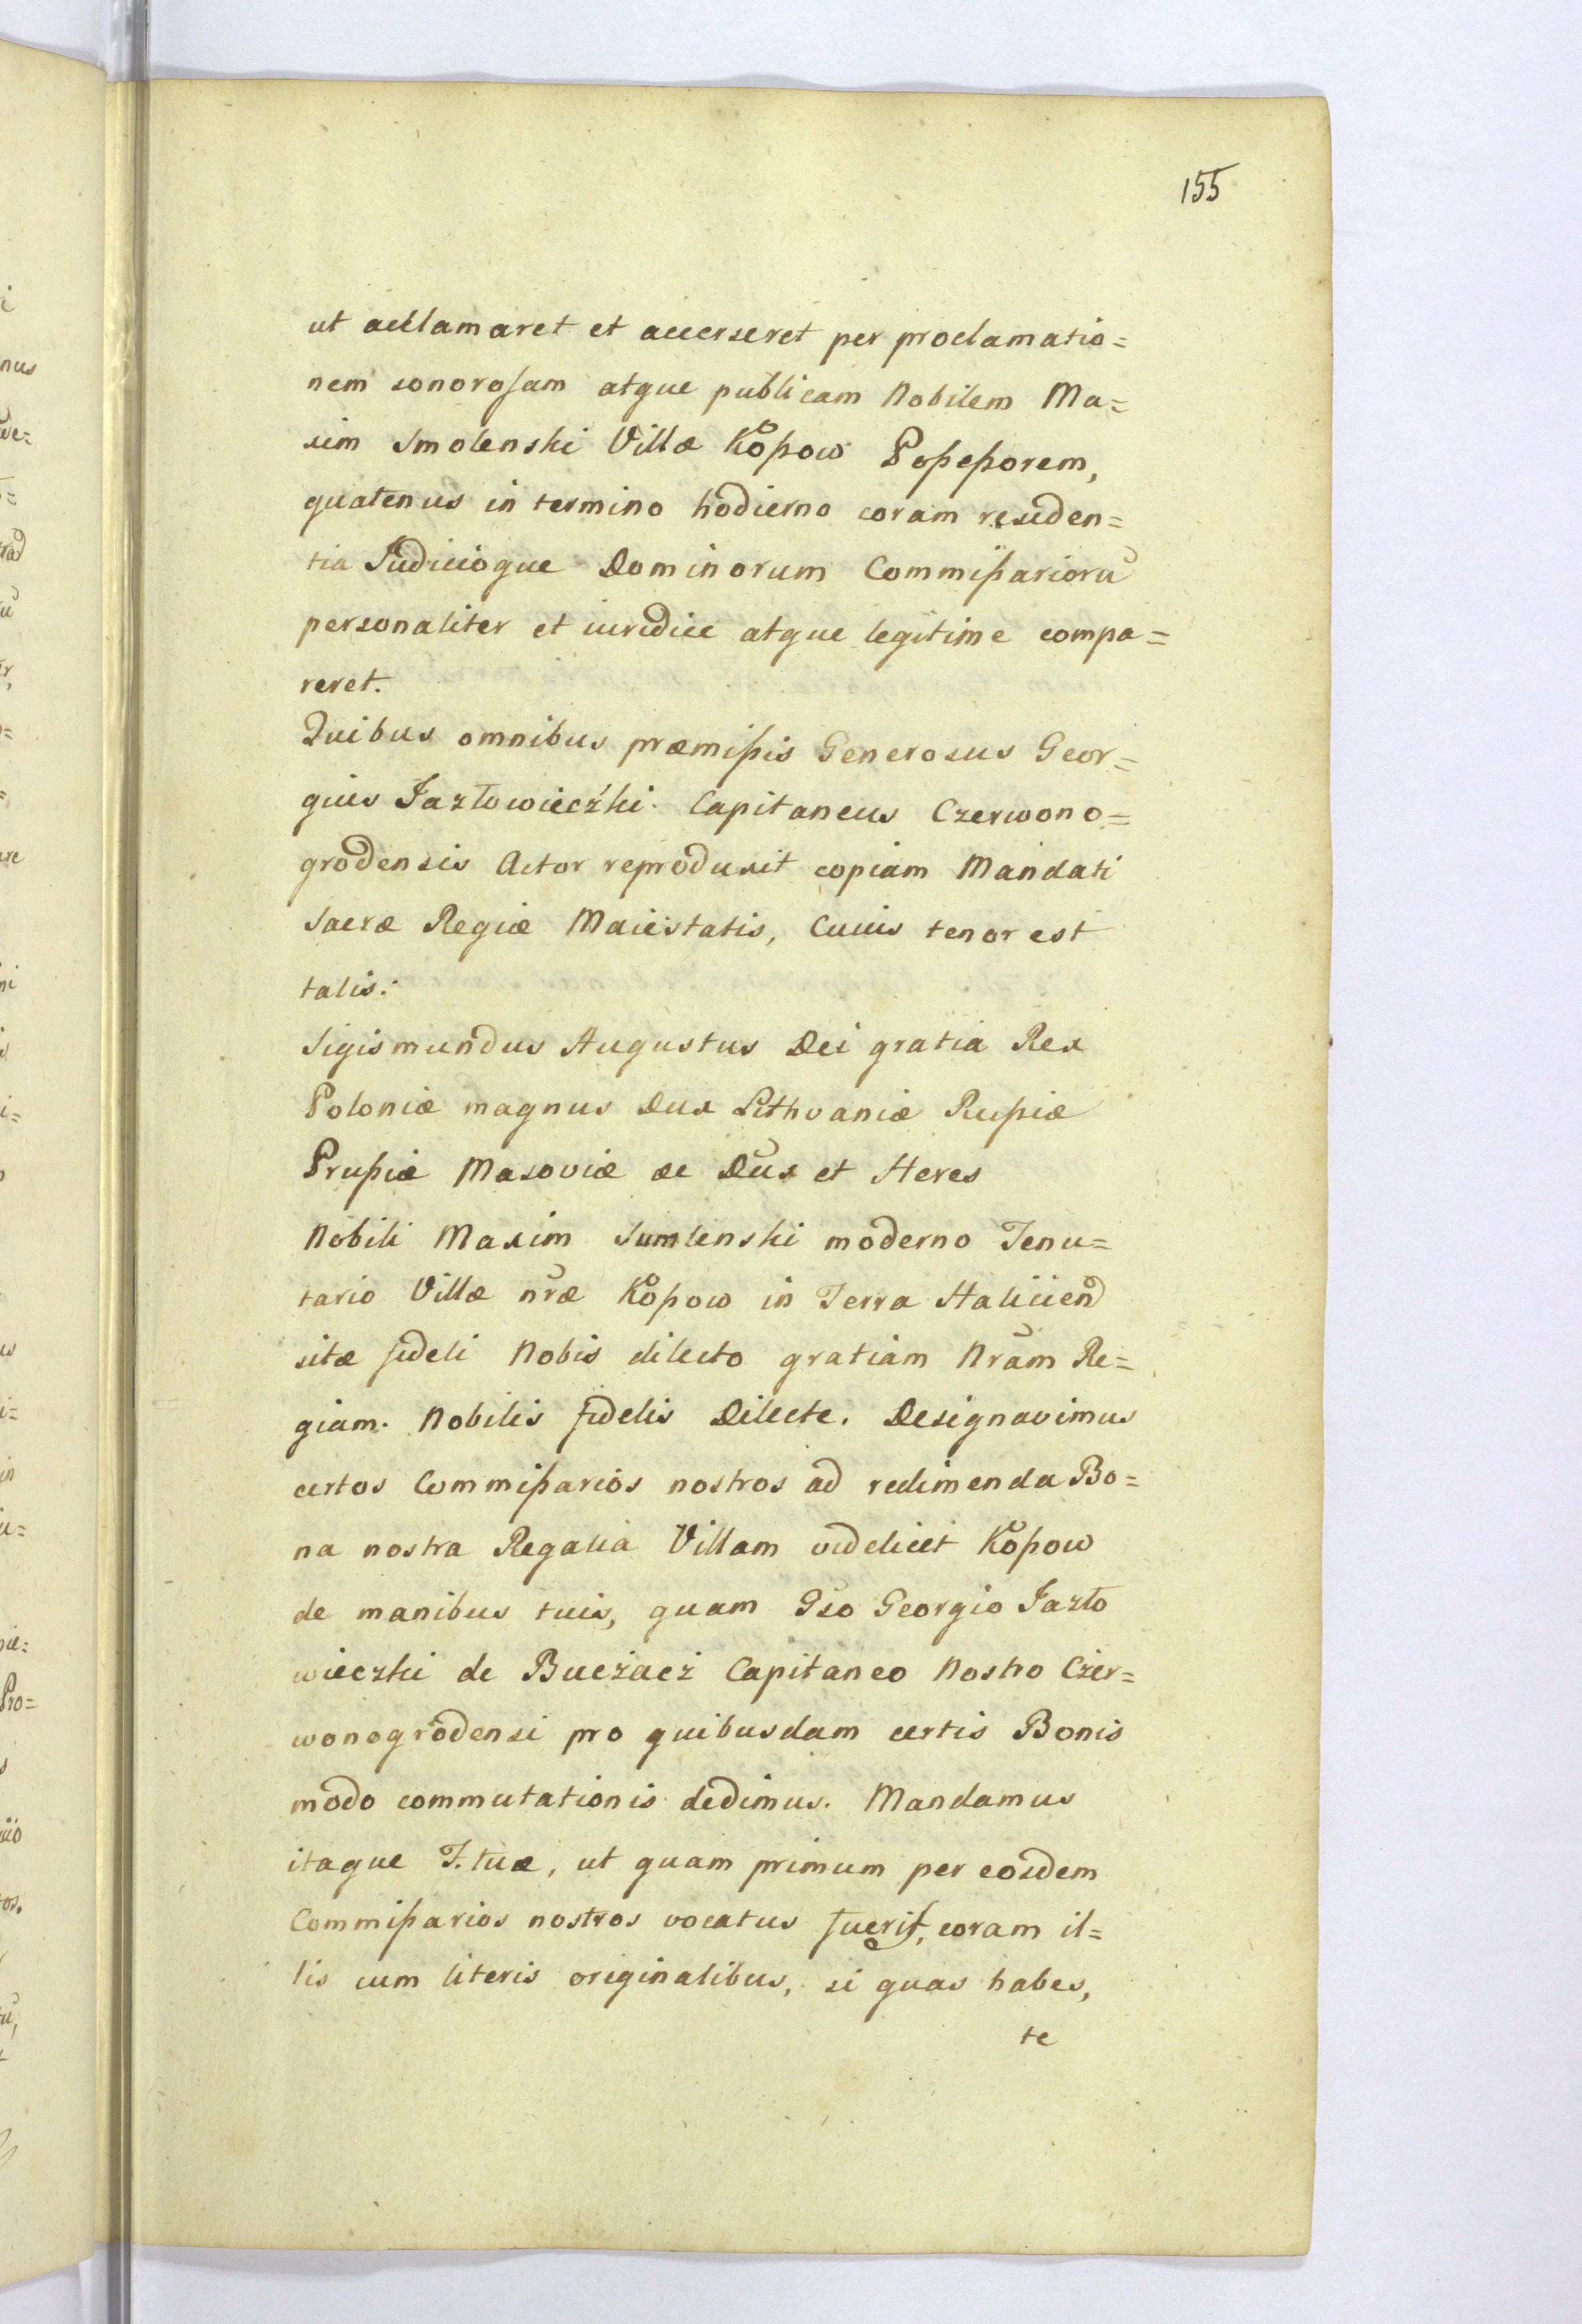 155
ut acclamaret et accerseret per proclamatio=
nem sonorosam atque publicam Nobilem Ma=
xim Smolenski Villæ Kopow Possessorem,
quatenus in termino hodierno coram residen=
tia Judicioque Dominorum Commissariorũ
personaliter et iuridice atque legitime compa=
reret.
Quibus omnibus præmissis Generosus Geor=
gius Jazłowieczki Capitaneus Czerwono=
grodensis Actor reproduxit copiam Mandati
Sacræ Regiæ Maiestatis, Cuius tenor est
talis:
Sigismundus Augustus Dei gratia Rex
Poloniæ magnus Dux Lithvaniæ Russiæ
Prussiæ Masoviæ ac Dũs et Heres
Nobili Maxim Sumlenski moderno Tenu=
tario Villæ nr̃æ Kopow in Terra Halicieñ
sitæ fideli Nobis dilecto gratiam Nr̃am Re=
giam. Nobilis fidelis Dilecte. Designavimus
certos Commissarios nostros ad redimenda Bo=
na nostra Regalia Villam videlicet Kopow
de manibus tuis, quam Gso Georgio Jazło
wieczki de Buczacz Capitaneo Nostro Czer=
wonogrodensi pro quibusdam certis Bonis
modo commutationis dedimus. Mandamus
itaque F. tuæ, ut quam primum per eosdem
Commissarios nostros vocatus fueris, coram il=
lis cum literis originalibus, si quas habes,
te